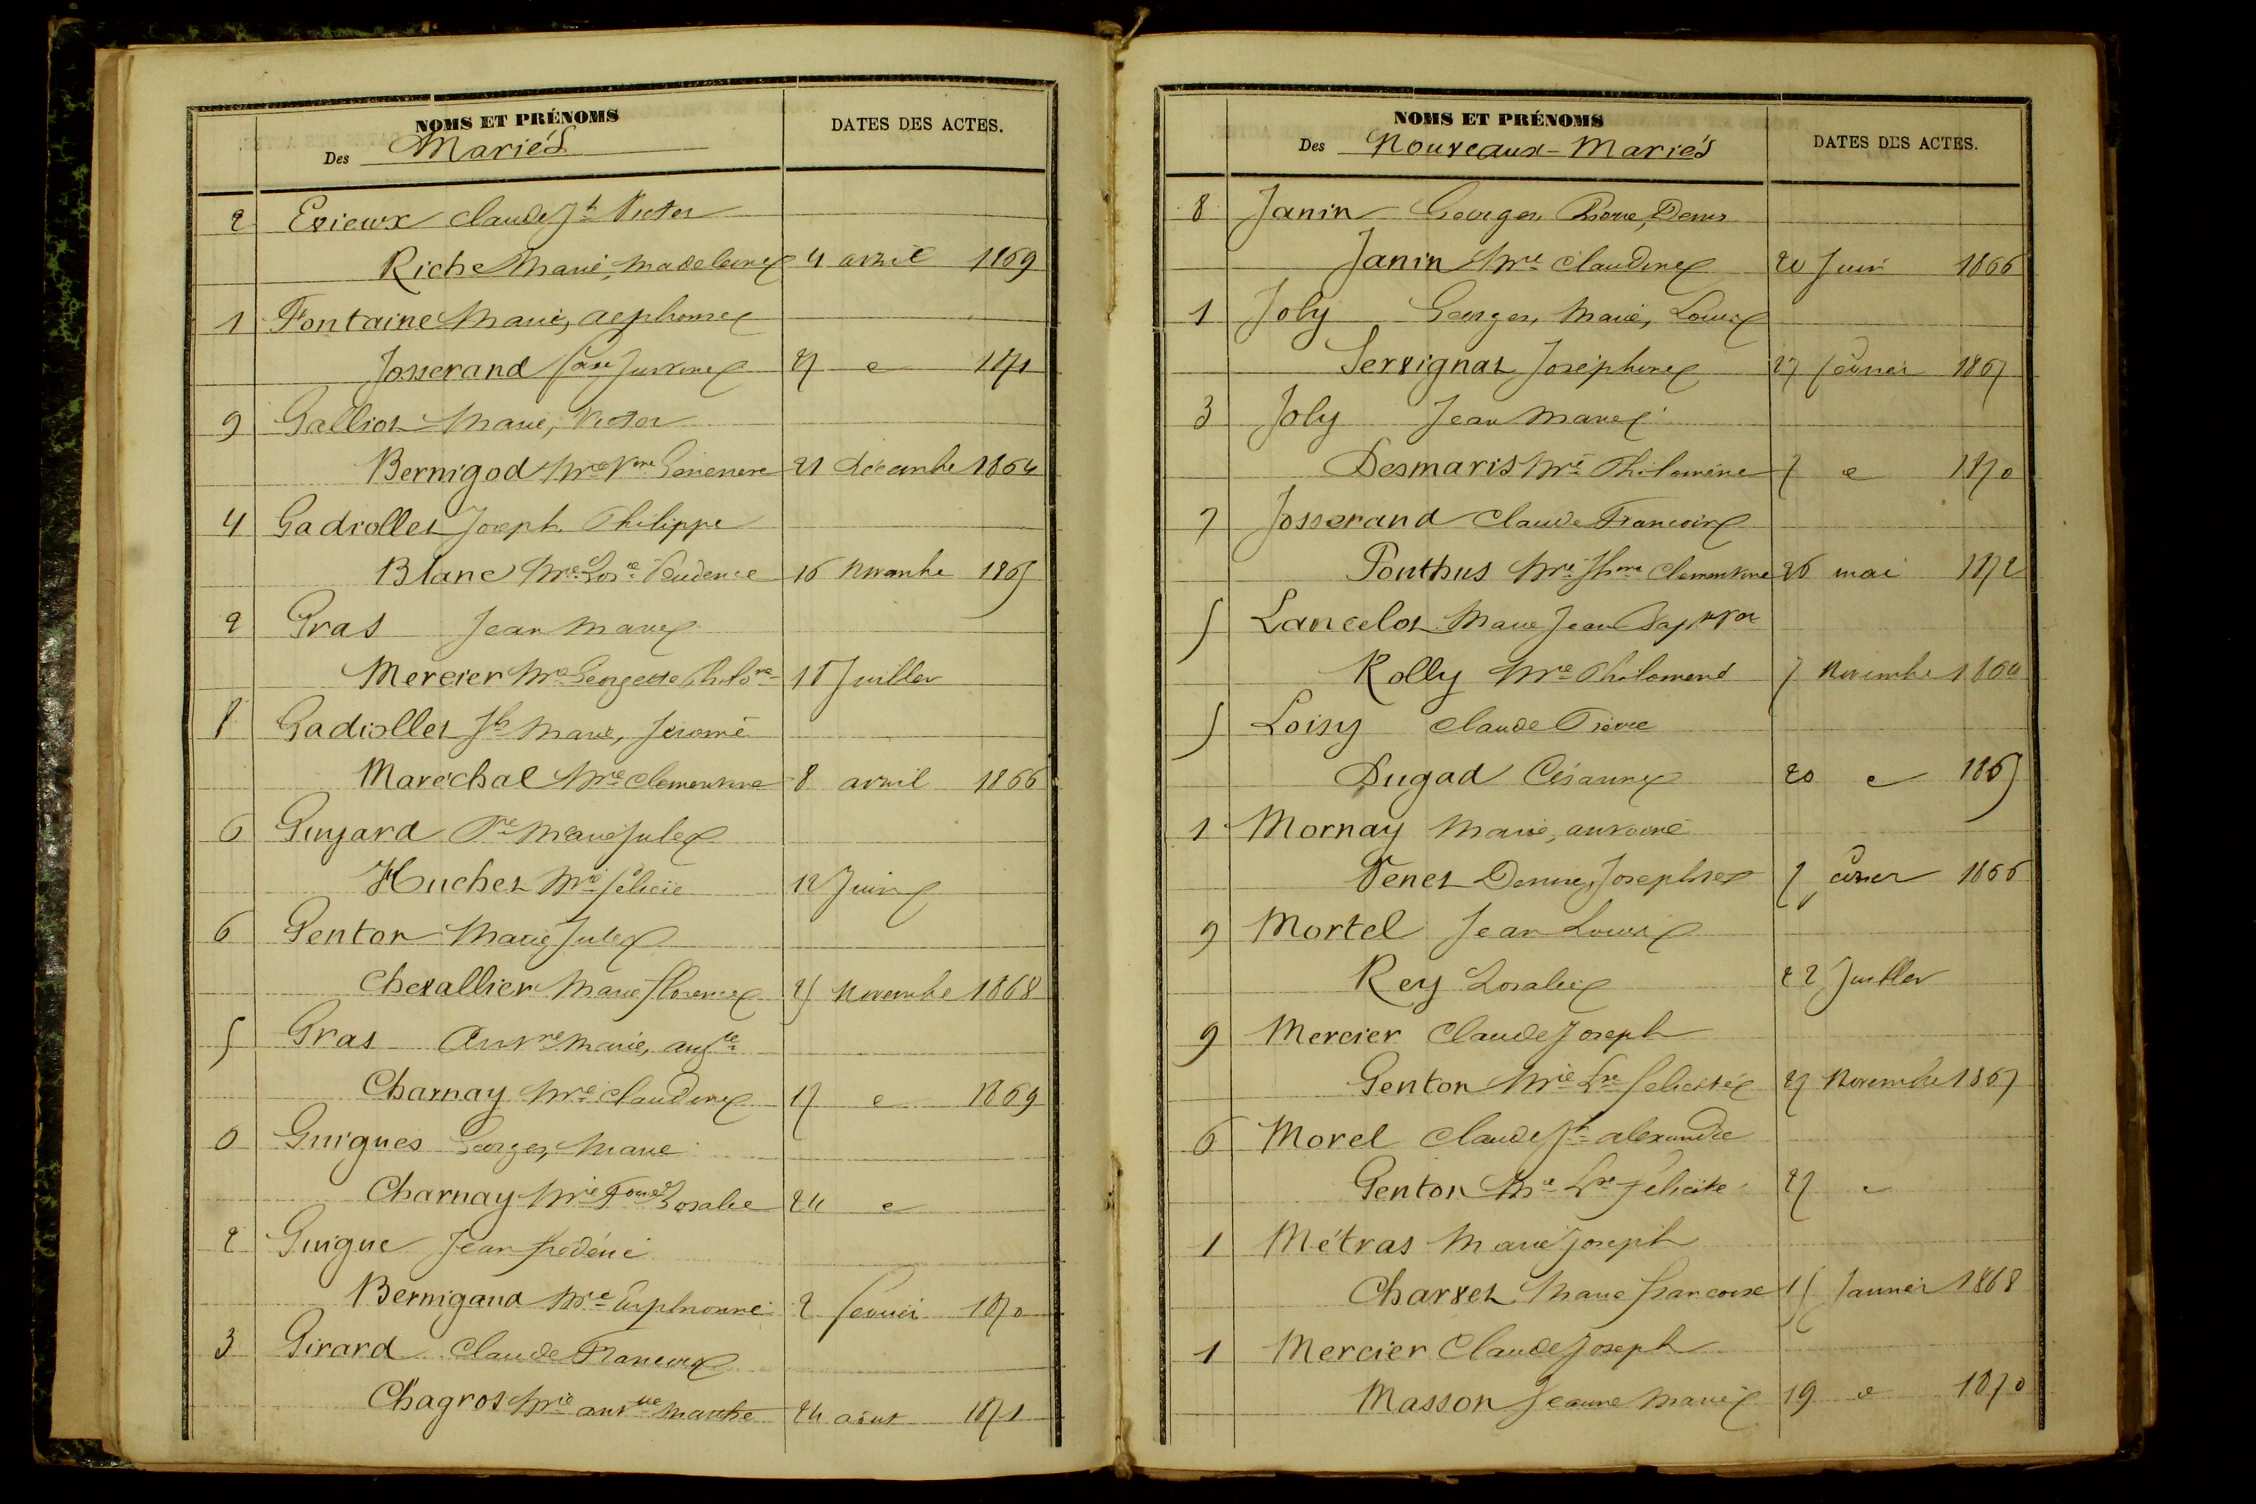 NOMS ET PRÉNOMS
Des Mariés
DATES DES ACTES.
2 Evieux Claude Jh Victor
Riche Marie, Madeleine 4 avril 1869
1 Fontaine Marie, Alphonse
Josserand Justine 27 e 1871
9 Galliot Marie, Victor
Bernigod Mie 21 décembre 1864
4 Gadiollet Joseph Philippe
Blanc Mie Prudence 16 Novembre 1865
2 Gras Jean Marie
Mercier Mie Georgette 18 Juillet
8 Gadiollet Jh Marie, Jérome
Maréchal Mie Clementine 8 avril 1866
6 Guyard Marie Jules
Huchet Mie félicie 12 Juin
6 Genton Marie Jules
Chevallier Marie florence 25 Novembre 1868
5 Gras Antne Marie, augte
Charnay Mie Claudine 17 e 1869
0 Guigues Georges, Marie
Charnay Mie Rosalie 24 e
2 Guigue Jean frédéric
Bernigaud Mie Euphrosine 2 février 1870
3 Girard Claude François
Chagrot Mie antte Marthe 24 août 1871
NOMS ET PRÉNOMS
Des Nouveaux-Mariés
DATES DES ACTES.
8 Janin Georges, Pierre, Denis
Janin Mie Claudine 20 Juin 1866
1 Joly Georges, Marie, Louis
Servignat Joséphine 27 février 1867
3 Joly Jean Marie
Desmaris Mie Philomène 7 e 1870
7 Josserand Claude François
Ponthus Mie Clementine 26 mai 1872
5 Lancelot Marie Jean
Rolly Mie Philomène 7 Novembre 1864
5 Loisy Claude Pierre
Dugad Césarine 20 e 1865
1 Mornay Marie, antoine
Venet Denise, Josephte 7 février 1866
9 Mortel Jean Louis
Rey Rosalie 22 Juillet
9 Mercier Claude Joseph
Genton Mie Lse félicité 27 Novembre 1867
6 Morel Claude Jh alexandre
Genton Mie Lse félicité 27 e
1 Métras Marie Joseph
Charvet Marie françoise 15 Janvier 1868
1 Mercier Claude Joseph
Masson Jeanne Marie 19 e 1870